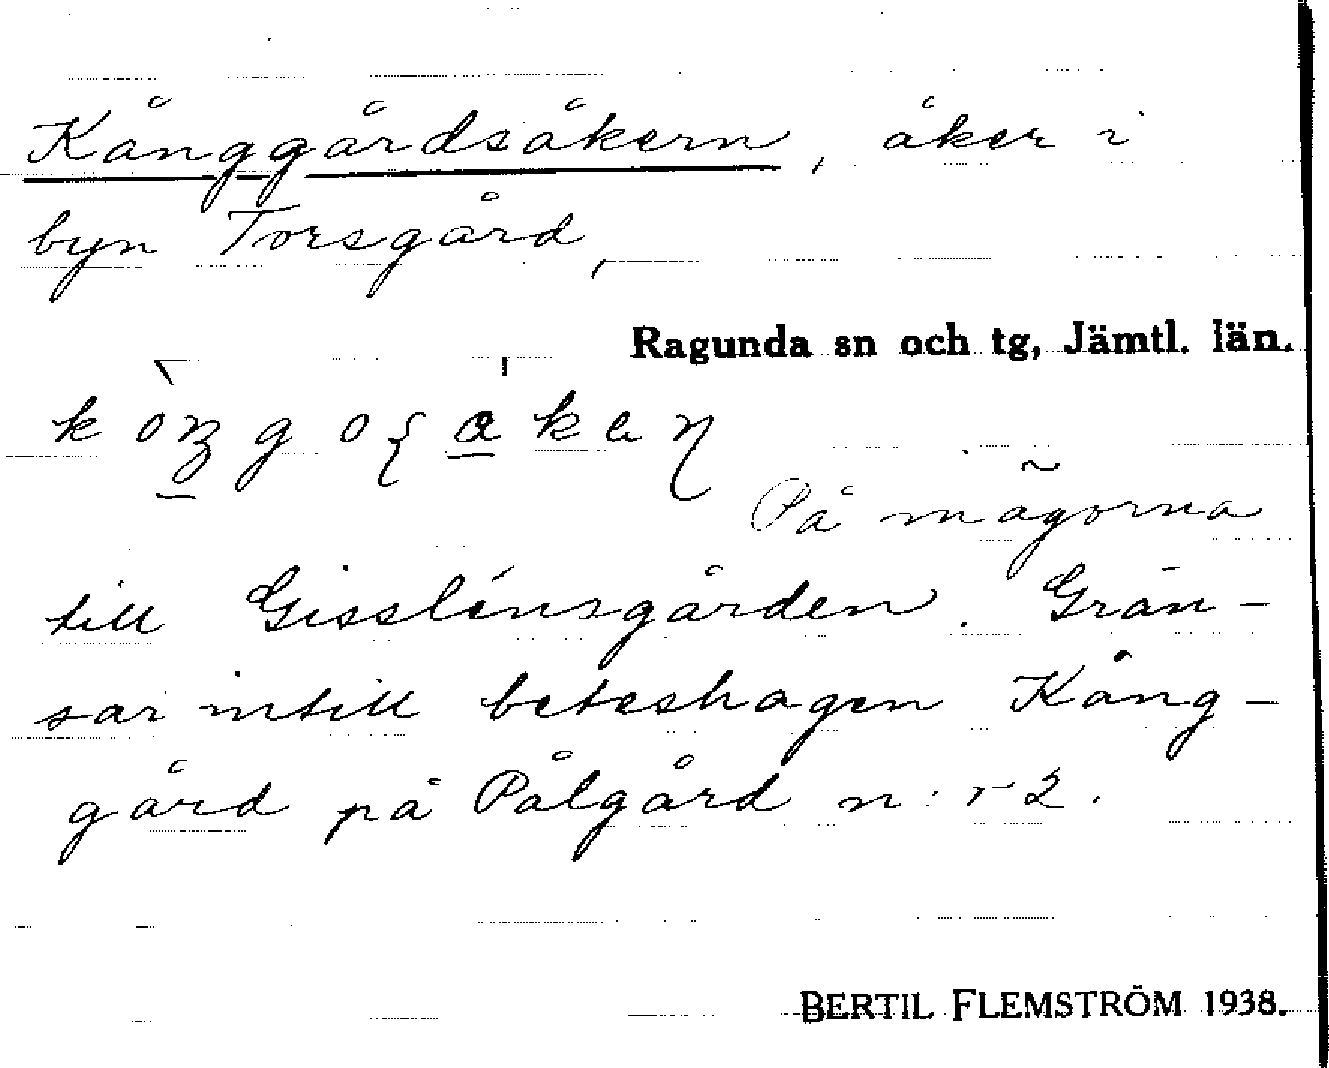 Kånggårdsåkern, åker i
byn Torsgård,
Ragunda sn och tg, Jämtl. län.
På inägorna
till Gisslénsgården. Grän-
sar intill beteshagen Kång-
gård på Pålgård n:r 2.
BERTIL FLEMSTRÖM 1938.